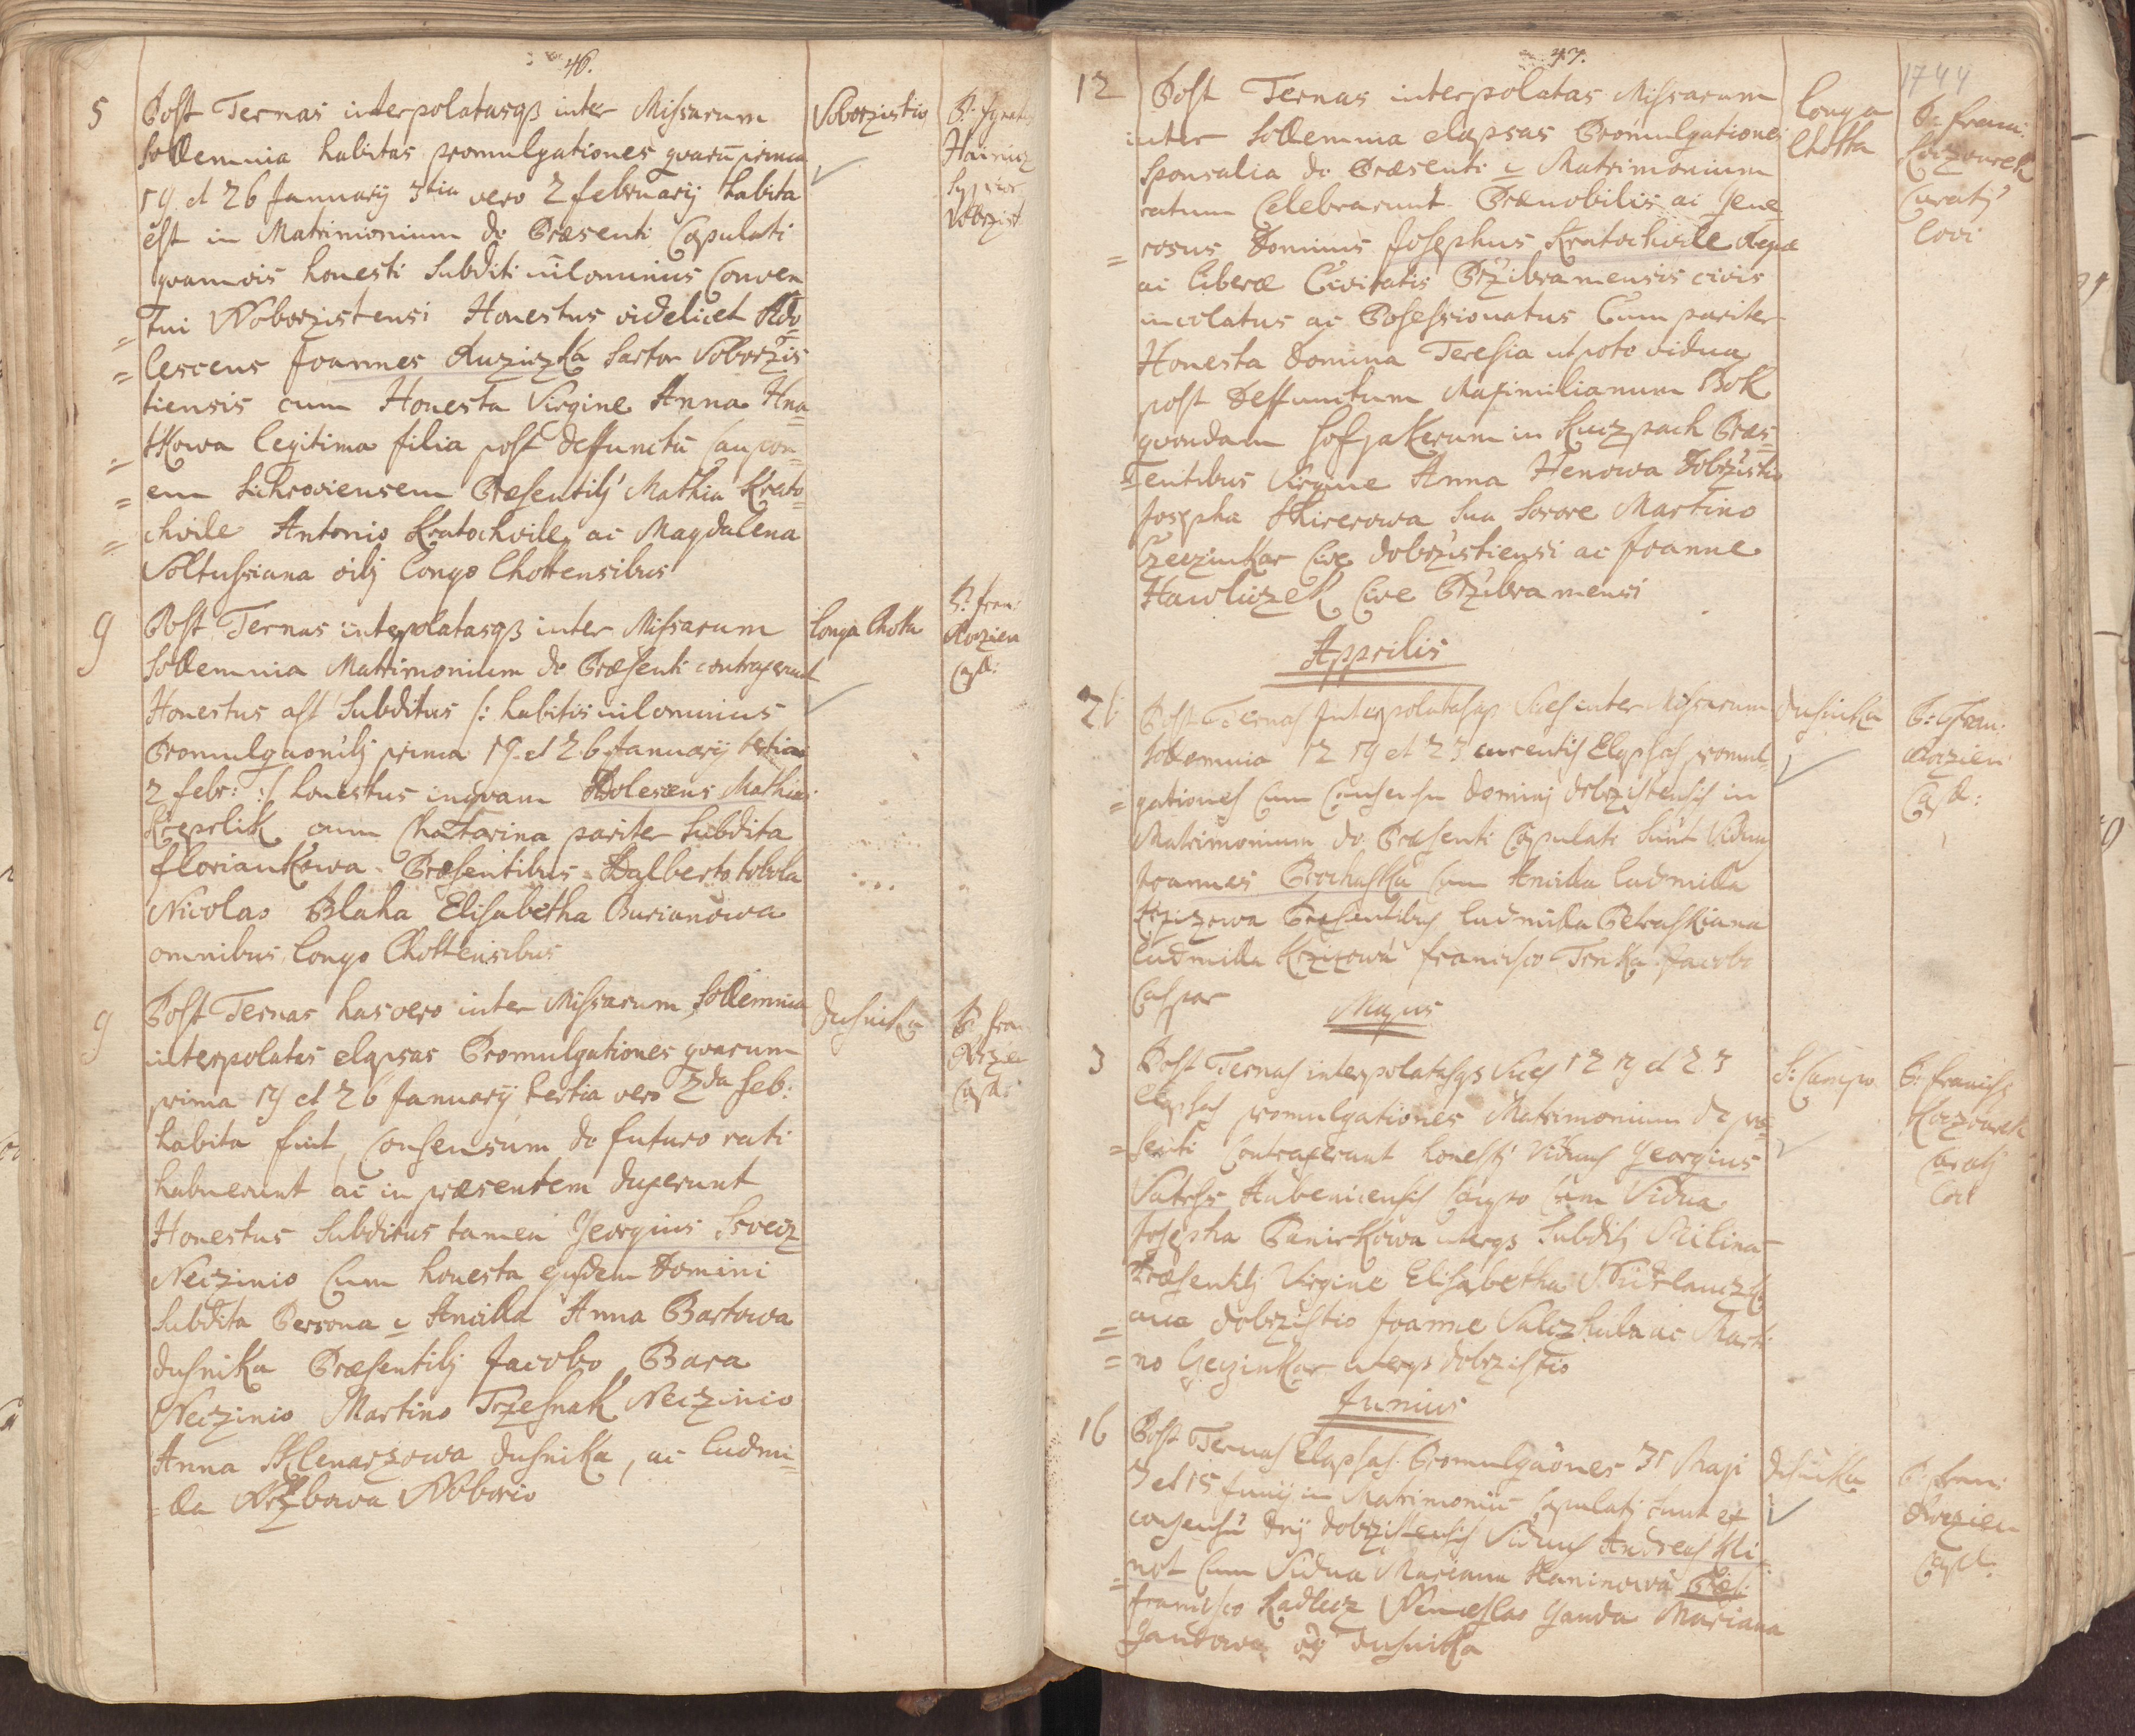 46.
5
Post Ternas interpolatasqз inter Missarum
Sollemnia habitas promulgationes quarū prima
19 et 26 January 3tia vero 2 february habita
est in Matrimonium de Præsenti Copulati
quamvis honesti Subditi nilominus Conven
tui Woborzistensi Honestus videlicet Ado=
=lescens Joannes Ruziczka Sartor Voborzis
tiensis cum Honesta Virgine Anna Hna=
tkowa legitima filia post deffunctū caupon=
=em Suchroviensem Præsentibj Mathia Krato=
=chvile Antonio Kratochvile ac Magdalena
Voltussiana oibj Longo Lhottensibus
Voborzistio
P: Ignatio
Hainicz
Dobrzist
9
Post Ternas interpolatasqз inter Missarum
Sollemnia Matrimonium de Præsenti contraxerunt
Honestus ast Subditus /: habitis nilominus
Promulgaōnibj prima 19 et 26 January tertia
2 febr: :/ honestus inquam Adolescens Mathias
Krepelik cum Chatarina pariter Subdita
floriankowa Præsentibus Adalberto tobola
Nicolao Blaha Elisabetha Burianowa
omnibus Longo Lhottensibus
Longa Lhotta
P: fran:
Korzien
Capl:
9
Post Ternas has vero inter Missarum Sollemnia
interpolatas elapsas Promulgationes quarum
prima 19 et 26 January tertia vero 2da feb:
habita fuit, Consensum de futuro rati
habuerunt ac in præsentem duxerunt
Honestus Subditus tamen Georgius Svecz
Neczinio Cum honesta ejusdem Domini
Subdita Persona c Ancilla Anna Bartowa
dusnika Præsentibj Jacobo Bara
Neczinio Martino Trzesnak Neczinio
Anna Sklenarzowa dusnika, ac Ludmi=
=lla Wrzbowa Woborio
dusnika
P: fra
Korzen
Capl:
47.
1744
12
Post Ternas interpolatas Missarum
inter Sollemnia elapsas Promulgationes
Sponsalia de Præsenti c Matrimonium
ratum Celebrarunt Prænobilis ac Gene
=rosus Dominus Josephus Kratochvile Regiæ
ac Liberæ Civitatis Przibramensis civis
incolatus ac Posessionatus Cum pariter
Honesta Domina Teresia utpote vidua
post Deffunctum Maximilianum Bok
quondam hofjakerum in Kuczpach Præs=
=entibus Virgine Anna Henowa Dobrzistio
Josepha Skirerowa Sua Sorore Martino
Czeczinkar Cive dobrzistiensi ac Joanne
Hawliczek Cive Przibramensi
Longa
Lhotta
P: franc:
Korzourek
Curatj
Loci
Apprilis
26
Post Ternas Interpolatasqз Vices inter Missarum
Sollemnia 12 19 et 23 currentis Elapsas promul
=gationes Cum Consensu Dominj dobrzistensis in
Matrimonium de Præsenti Copulati Sunt Viduus
Joannes Prochaska Cum Ancilla Ludmilla
Krzizowa Præsentibus Ludmilla Petraskiana
Ludmilla Krzizowa francisco Trnka Jacobo
Caspar
dusnika
P: Fran:
Korzien
Capl:
Majus
3
Post Ternas interpolatasqз Vices 12 19 et 23
Elapsas promulgationes Matrimonium de præ
=senti Contraxerunt honesti Viduus Georgius
Josepha Panirkowa uterqз Subditj Milina
Præsentibj Virgine Elisabetha
dobrzistio Joanne ac Marti
=no Czeczinkar uterqз dobrzistio
S: Campo
P: francis
Korzourek
Curatj
Loci
Junius
16
Post Ternas Elapsas Promulgaōnes 31 Maji
7 et 15 Junij in Matrimoniū Copulatj sunt ex
consensu Dnj dobrzistensis Viduus Andreas Kli=
=not Cum Vidua Mariana Kaninowa Præs:
francisco Kadlecz Wenceslao Ganda Mariana
Gandowa oj dusnika
dusnika
P: fran:
Korzien
Capl: